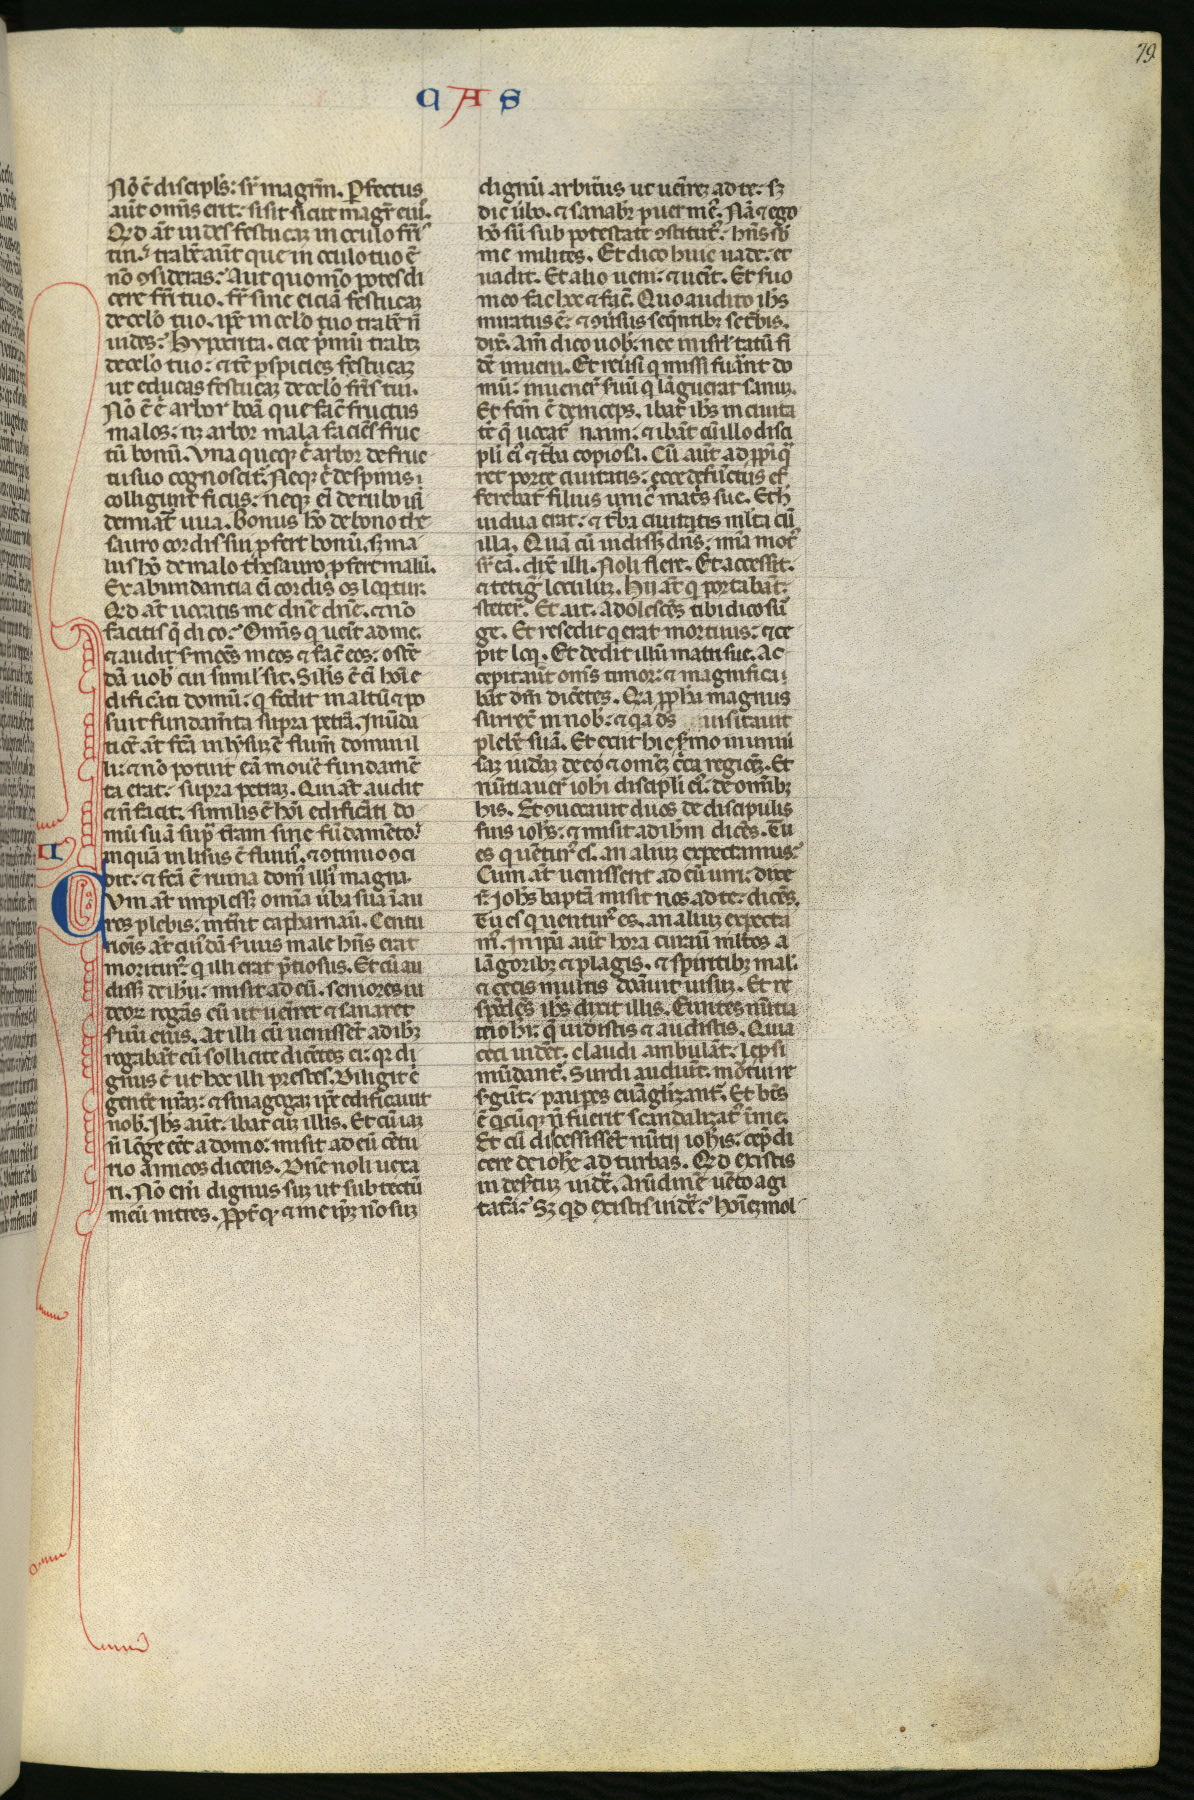 79
CAS
Nō ē discipls: sr̄ magrm̄. Perfectus
aūt om̄is erit: si sit sicut magr̄ eiꝰ.
Q̇d aūt uides festucaꝫ in oculo fr̄is
tui? trabē aūt que in oculo tuo ē
nō ꝯsideras? Aut quomō potes di
cere fr̄i tuo. fr̄ sine eiciā festucaꝫ
de oclō tuo. ipē in oclō tuo trabē ñ
uides? Hypocrita. eice p̄mū trabeꝫ
de oclō tuo: ⁊ tē pspicies festucaꝫ
ut educas festucaꝫ de oclō fr̄is tui.
Nō ē ē arbor boā que faē fructus
malos: nꝫ arbor mala faciēs fruc
tū bonū. Vna queqꝫ ē arbor de fruc
tu suo cognoscit᷑. Neqꝫ ē de spinis
colligunt ficus: neqꝫ ei de rubo uī
demiāt uua. Bonus hō de bono the
sauro cordis sui pfert bonū. sꝫ ma
lus hō de malo thesauro pfert malū.
Ex abundancia ei cordis os loqtur.
Q̇d aūt uocatis me dn̄e dn̄e. ⁊ nō
facitis q̄ dico? Om̄is q uēit ad me.
⁊ audit s̄mōes meos ⁊ faē eos: ostē
dā uob᷑ cui simil᷑ sit. Silīs ē ei hoīe
dificāti domū: q fodit in altū ⁊ po
suit fundam̄ta supra petrā. Inūda
tiōē at fc̄a inlysuꝫ ē flum̄ domui il
li: ⁊ nō potuit eā mouē fundamē
ta erat: supra petraꝫ. Qui āt audit
⁊ ñ facit: similis ē hōi edificāti do
mū suā sup̄ tram sine fūdamēto:
in quā inlisus ē fluuiꝰ. ⁊ ꝯtinuo ꝯci
dit: ⁊ fc̄a ē ruina domꝰ illiꝰ magna.
VII
Cum at implesseꝫ om̄ia ūba sua ī au
res plebis: intīit capharnaū. Centu
riōis at cuiꝰdā s̄uus male hn̄s erat
moriturꝰ q illi erat p̄tiosus. Et cū au
disseꝫ de ihū: misit ad eū. seniores iu
deoꝝ rogās eū ut uēiret ⁊ sanaret
s̄uū eius. At illi cū uenissēt ad ihꝫ
rogabāt eū sollicite dicētes ei: qꝛ di
gnus ē ut hoc illi prestes. Diligit ē
gentē nr̄aꝫ: ⁊ sinagogaꝫ ipē edificauit
nob᷑. Ihs aūt: ibat cuꝫ illis. Et cū iaꝫ
ñ lōge eēt a domo: misit ad eū cētu
rio amicos dicens. Dn̄e noli uexa
ri. Nō eni dignus suꝫ ut sub tectū
meū intres. ꝓpt᷑ qḋ ⁊ me ipꝫ nō suꝫ
dignū arbitratus ut uēireꝫ ad te: sꝫ
dic ūbo. ⁊ sanabit᷑ puer mēꝰ. Nā ⁊ ego
hō sū sub potestate ꝯstitutꝰ: hn̄s sb̄
me milites. Et dico huic uade: et
uadit. Et alio ueni: ⁊ uēit. Et s̄uo
meo fac hoc ⁊ faē. Quo audito ihs
miratus ē: ⁊ ꝯūsus seqn̄tibꝫ se t᷑bis.
dixꝫ. Am̄ dico uob᷑: nec in isr̄l tātū fi
dē inueni. Et reūsi q missi fuāt do
mū: inuenerꝰ s̄uū q lāguerat sanuꝫ.
Et fcm̄ ē deinceps. ibat ihs in ciuita
tē q̄ uocat᷑ naim: ⁊ ibāt cū illo disci
pli eiꝰ ⁊ t᷑ba copiosa. Cū aūt appr̄pi q̄
ret porte ciuitatis: ecce defūctus ef
ferebat᷑ filius unicꝰ matꝰs sue. Et h̄
uidua erat: ⁊ t᷑ba ciuitatis mlt̄a cū
illa. Quā cū uidisseꝫ dn̄s: mīa motꝰ
sr̄ eā. dixꝫ illi. Noli flere. Et accessit:
⁊ tetigꝫ loculuꝫ. Hii āt q portabāt:
steterꝰ. Et ait. Adolescēs tibi dico sū
ge. Et resedit q erat mortuus: ⁊ ce
pit loq̣. Et dedit illū matri sue. Ac
cepit aūt om̄s timor: ⁊ magnifica
bāt dm̄ dicētes. Qꝛa pp̄ha magnus
surrexꝫ in nob᷑: ⁊ qꝛa ds̄ uisitauit
plebē suā. Et exiit hic s̄mo in uniū
saꝫ iudeaꝫ de eo ⁊ om̄eꝫ circa regiōeꝫ. Et
nūtiauerꝰ iohi discipli eiꝰ: de om̄ibꝫ
his. Et ꝯuocauit duos de discipulis
suis iohs: ⁊ misit ad ihm dicēs. Tu
es q uēturꝰ es. an aliuꝫ expectamus?
Cum āt uenissent ad eū uiri: dixe
rꝰ. Iohs baptā misit nos ad te: dicēs.
Tu es q uenturꝰ es. an aliuꝫ expecta
mꝰ. In ipā aūt hora curauit mltos a
lāgoribꝫ ⁊ plagis. ⁊ spiritibꝫ mal᷑.
⁊ cecis multis donauit uisuꝫ. Et re
spōdēs ihs dixit illis. Euntes nūtia
te iohi: q̄ uidistis ⁊ audistis. Quia
ceci uidēt. claudi ambulāt. lepsi
mūdant᷑. Surdi audiūt. mōtui re
s̄gūt. paupes euāglizant᷑. Et bt̄s
ē qicūqꝫ ñ fuerit scandalizatꝰ ī me.
Et cū discessissēt nūtij iohis: cep̄ di
cere de iohe ad turbas. Q̇d existis
in desertuꝫ uidē. Arūdinē uēto agi
tatā? Sꝫ qd existis uidē? hoīeꝫ mol